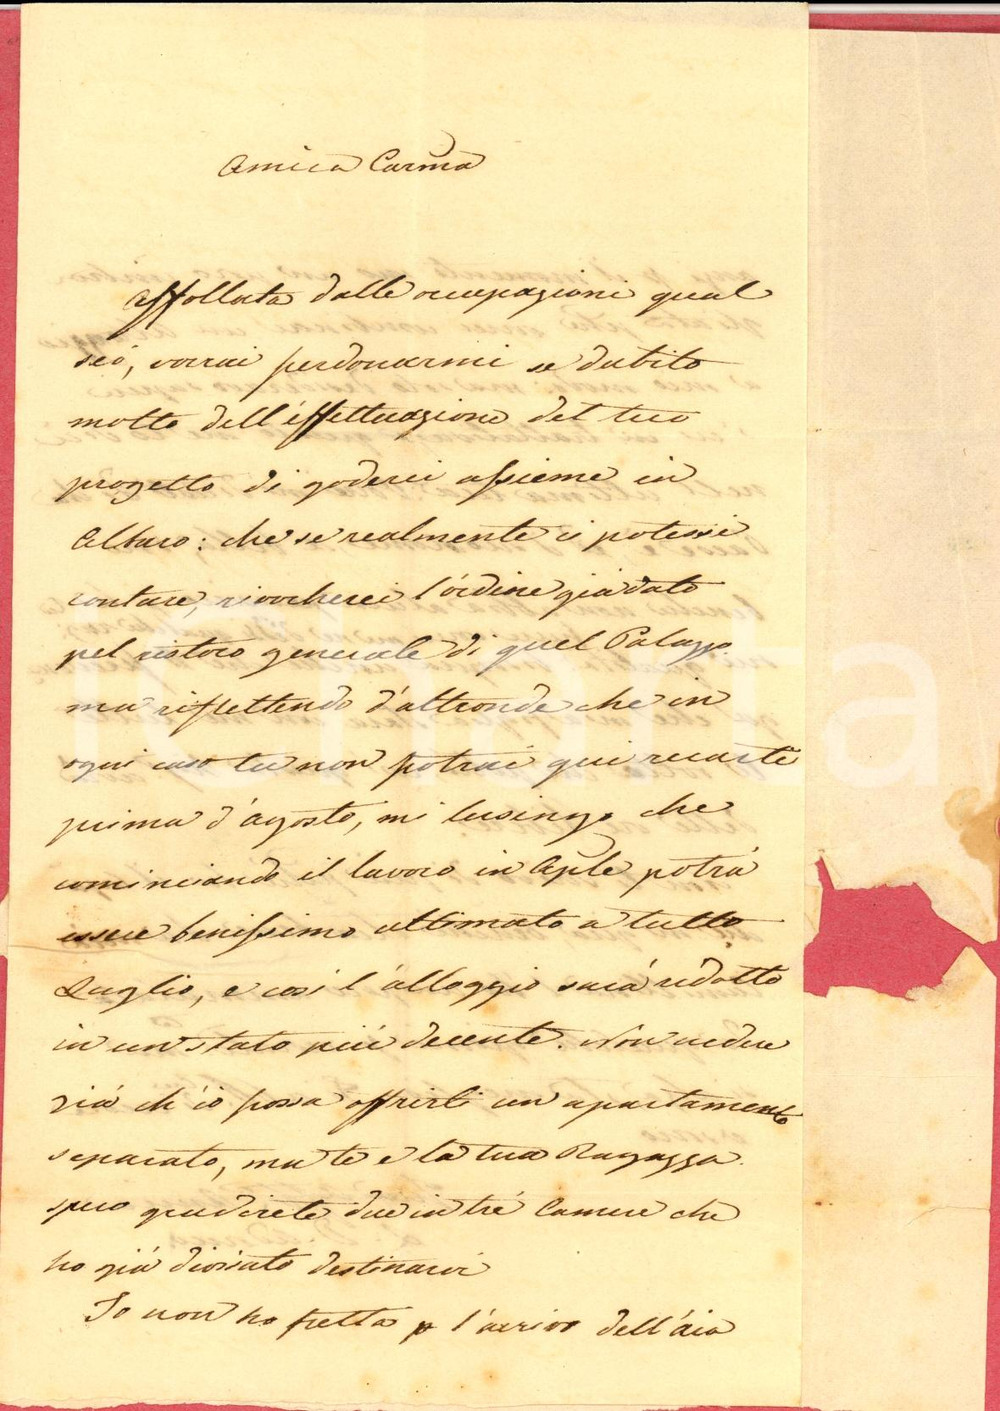 Amica Carma
Affollata dalle occupazioni qual
sei, vorrai perdonarmi se dubito
molto dell'effettuazione del tuo
progetto di goderci assieme in
Albaro: che se realmente ci potessi
contare, rivocherei l'ordine già dato
pel ristoro generale di quel Palazzo.
ma riflettendo d'altronde che in
ogni caso tu non potrai qui recarti
prima d'agosto, mi lusingo che
cominciando il lavoro in Aple potrà
essere benissimo ultimato a tutto
Luglio, e così l'alloggio sarà ridotto
in un stato più decente. Non credere
già ch'io possa offrirti un apartamento
separato, ma te e la tua Ragazza
spero gradirete due in tré Camere che
ho già divisato destinarvi
Io non ho fretta p l'arrivo dell'aia
iChata